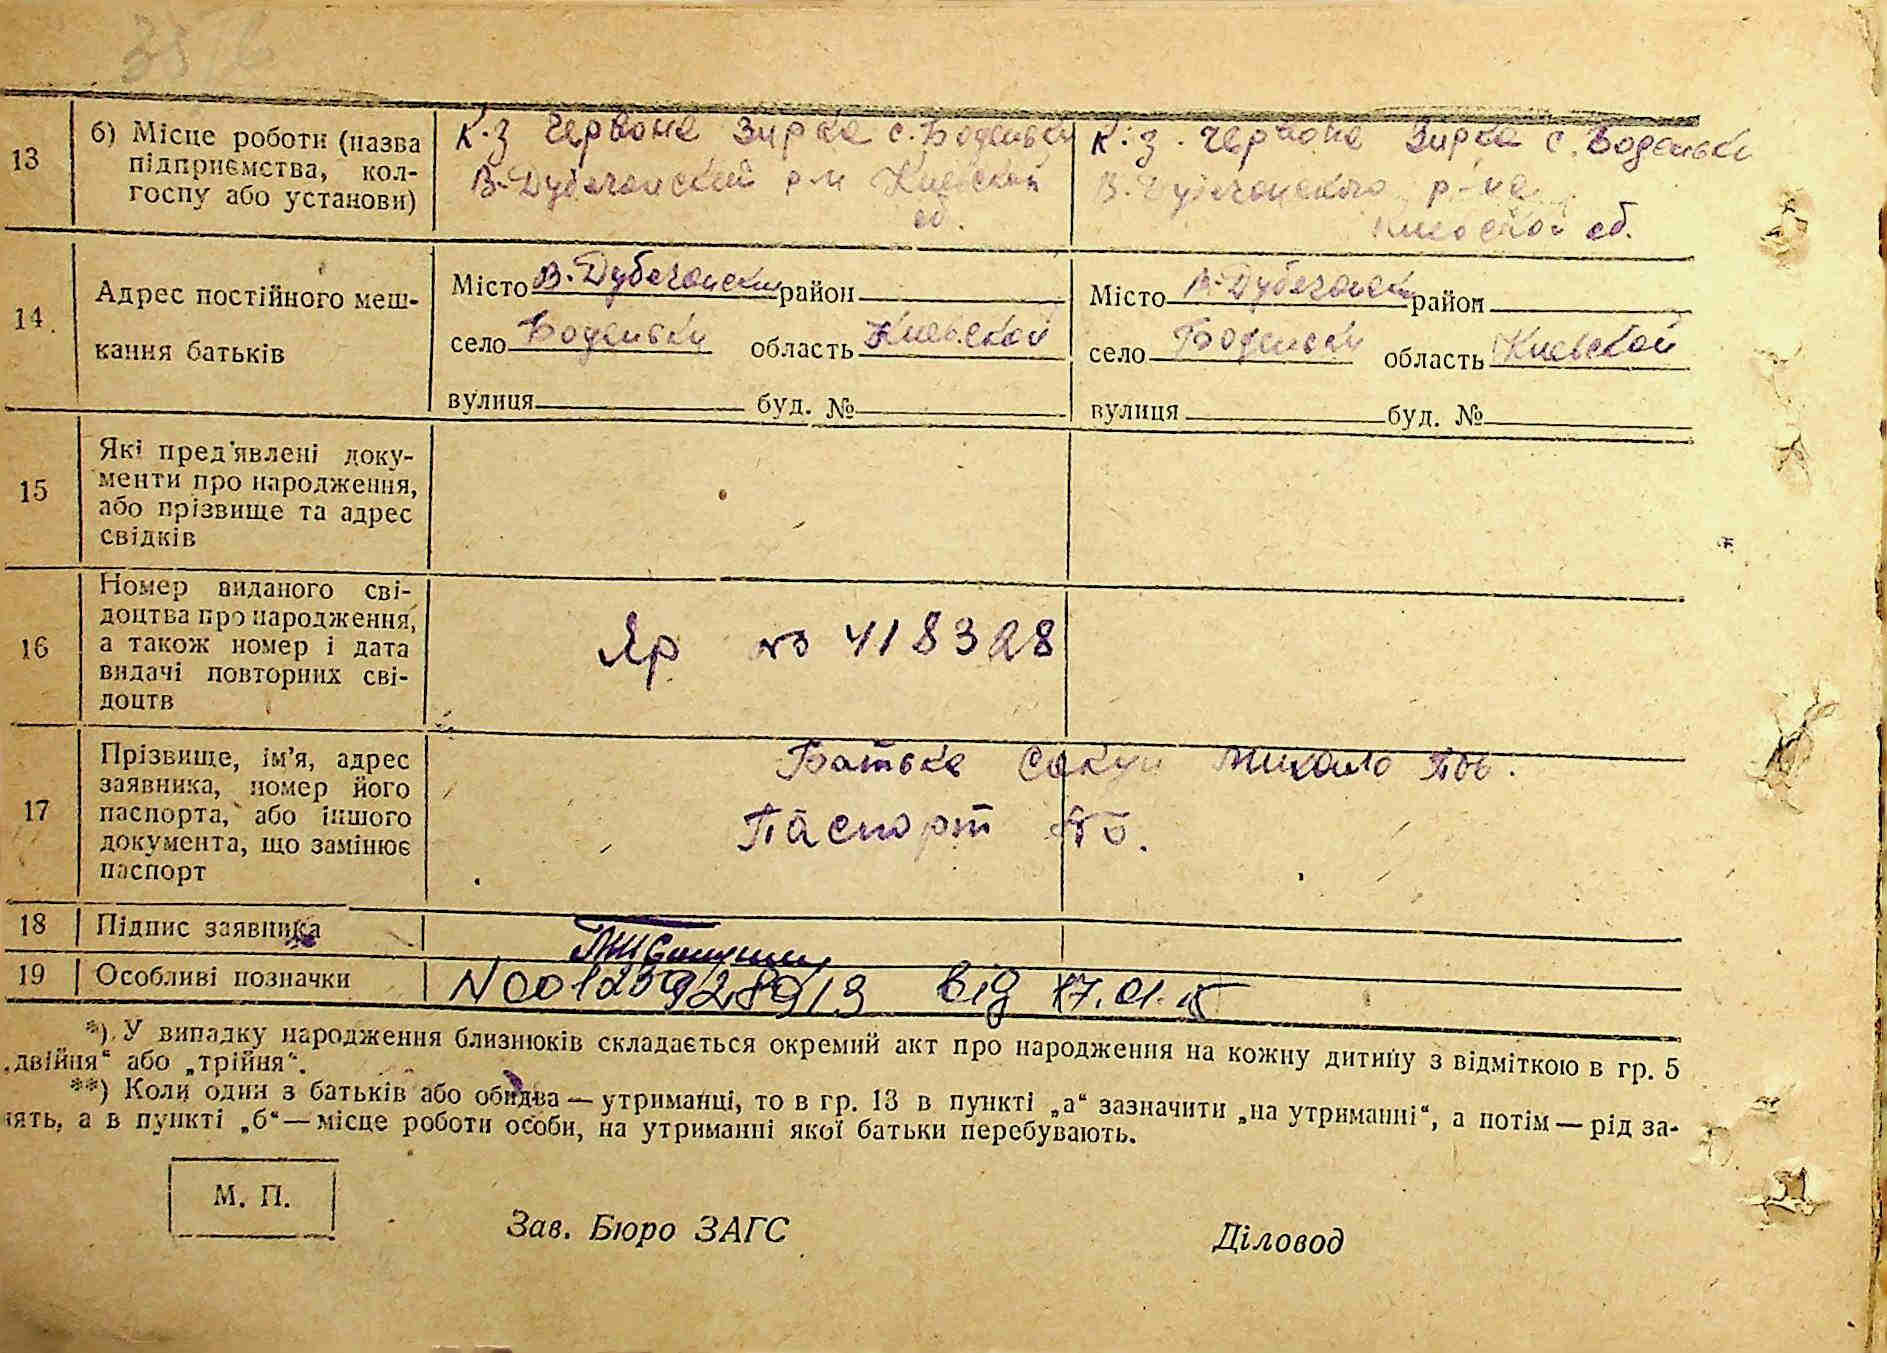 13
б) Місце роботи (назва
підприємства, кол-
госпу або установи)
К.з Червона Зирка с. Боденьки
В-Дубечанский р-н Киевской
об.
К.з. Червона Зирка с. Боденьки
В. Дубечанского р-на
Киевской об.
14
Адрес постійного меш-
кання батьків
Місто В-Дубечански район
село Боденьки область Киевской
вулиця буд. №
Місто В-Дубечански район
село Боденьки область Киевской
вулиця буд. №
15
Які пред'явлені доку-
менти про народження,
або прізвище та адрес
свідків
16
Номер виданого сві-
доцтва про народження,
а також номер і дата
видачі повторних сві-
доцтв
Яр № 418328
17
Прізвище, ім'я, адрес
заявника, номер його
паспорта, або іншого
документа, що замінює
паспорт
Батька Сакун Михайло
Паспорт
18 Підпис заявника
19 Особливі позначки
N00125928919 від 17.01.15
*) У випадку народження близнюків складається окремий акт про народження на кожну дитину з відміткою в гр. 5
„двійня“ або „трійня“.
**) Коли один з батьків або обидва — утриманці, то в гр. 13 в пункті „а“ зазначити „на утриманні“, а потім — рід за-
нять, а в пункті „б“ — місце роботи особи, на утриманні якої батьки перебувають.
М. П.
Зав. Бюро ЗАГС
Діловод